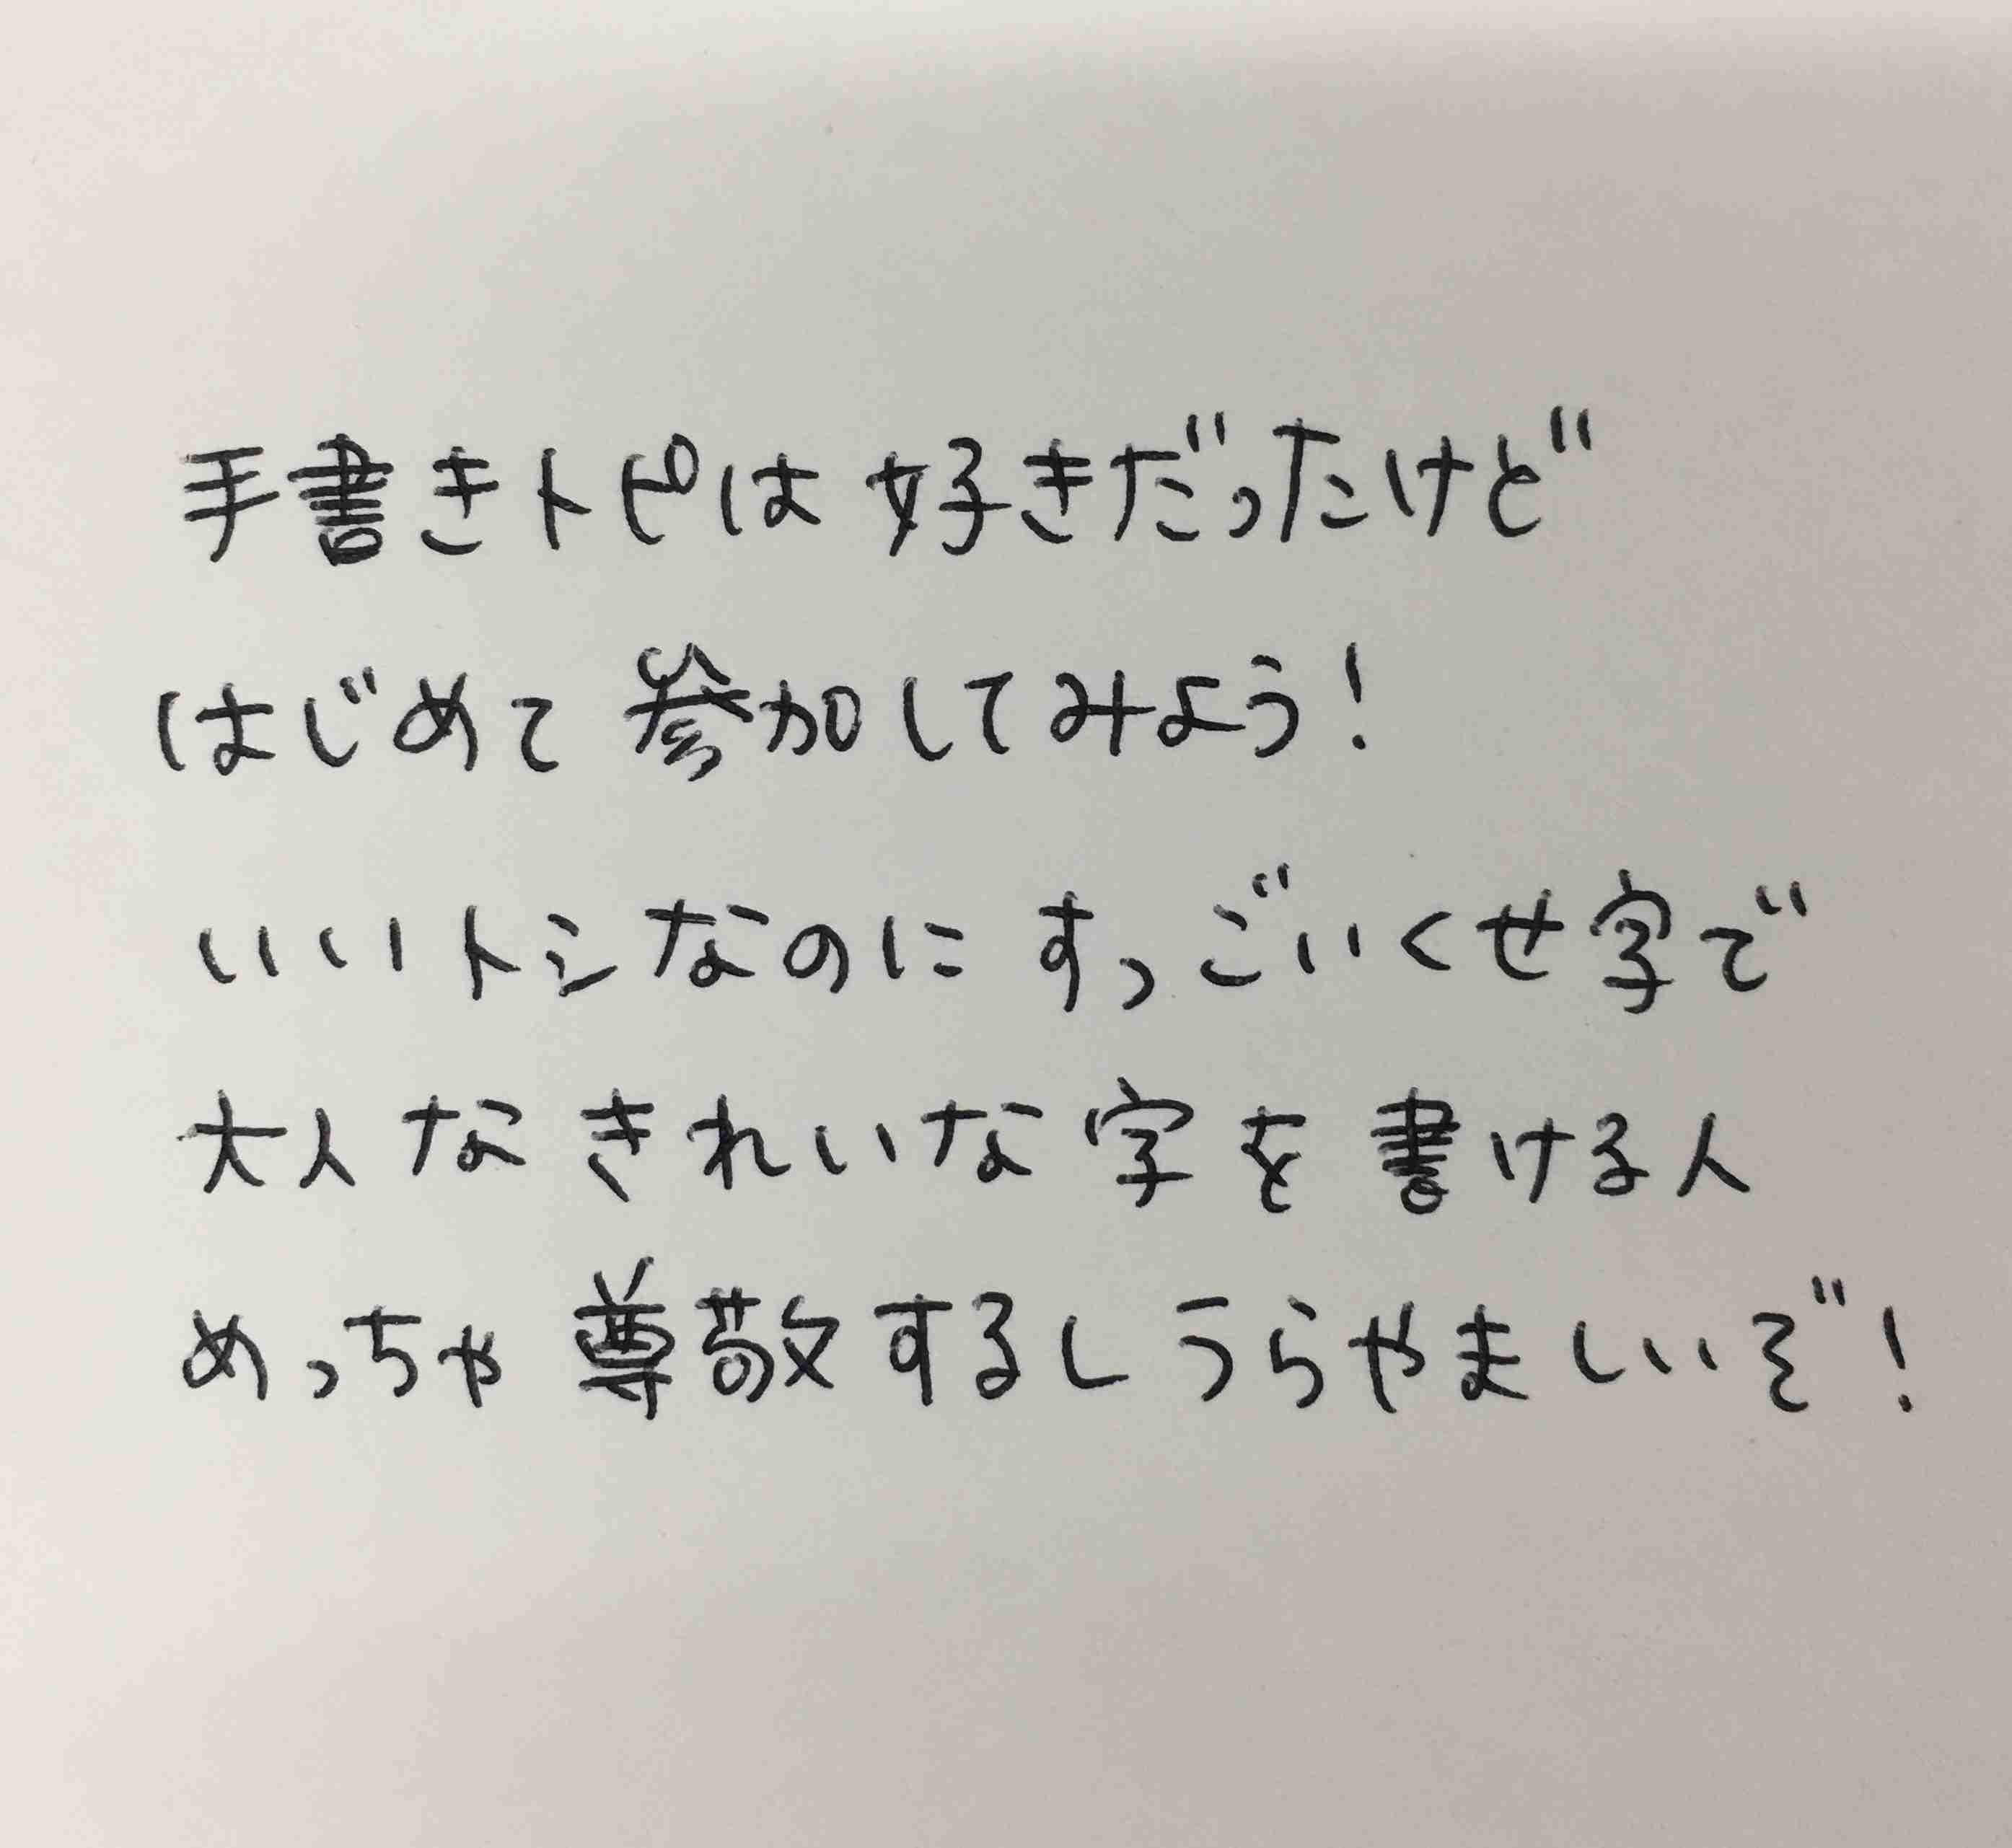 手書きトピは好きだったけど
はじめて参加してみよう!
いいトシなのにすっごいくせ字で
大人なきれいな字を書ける人
めっちゃ尊敬するしうらやましいぞ!